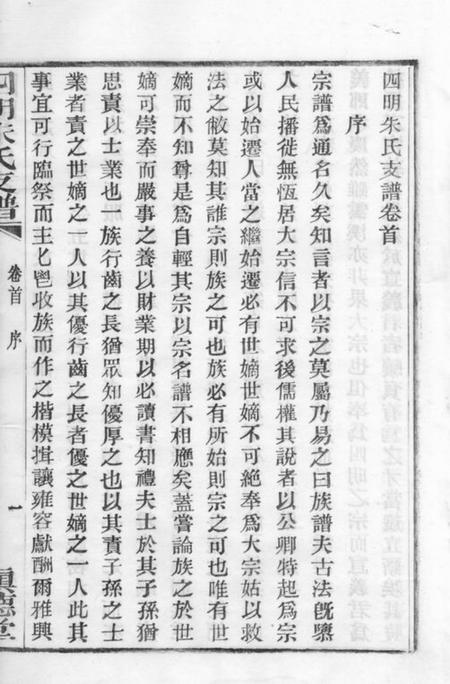 四明朱氏支譜卷首
序
宗譜爲通名久矣知言者以宗之莫屬乃易之曰族譜夫古法旣隳
人民播徙無恆居大宗信不可求後儒權其說者以公卿特起爲宗
或以始遷人當之繼始遷必有世嫡世嫡不可絕奉爲大宗姑以救
法之敝莫知其誰宗則族之可也族必有所始則宗之可也唯有世
嫡而不知尊是爲自輕其宗以宗名譜不相應矣蓋嘗論族之於世
嫡可崇奉而嚴事之養以財業期以必讀書知禮夫士於其子孫猶
思責以士業也 族行齒之長猶眾知優厚之也以其責子孫之士
業者責之世嫡之一人以其優行齒之長者優之世嫡之一人此其
事宜可行臨祭而主匕鬯收族而作之楷模揖讓雍容獻酬爾雅興
四明朱氏支譜
卷首 序
一